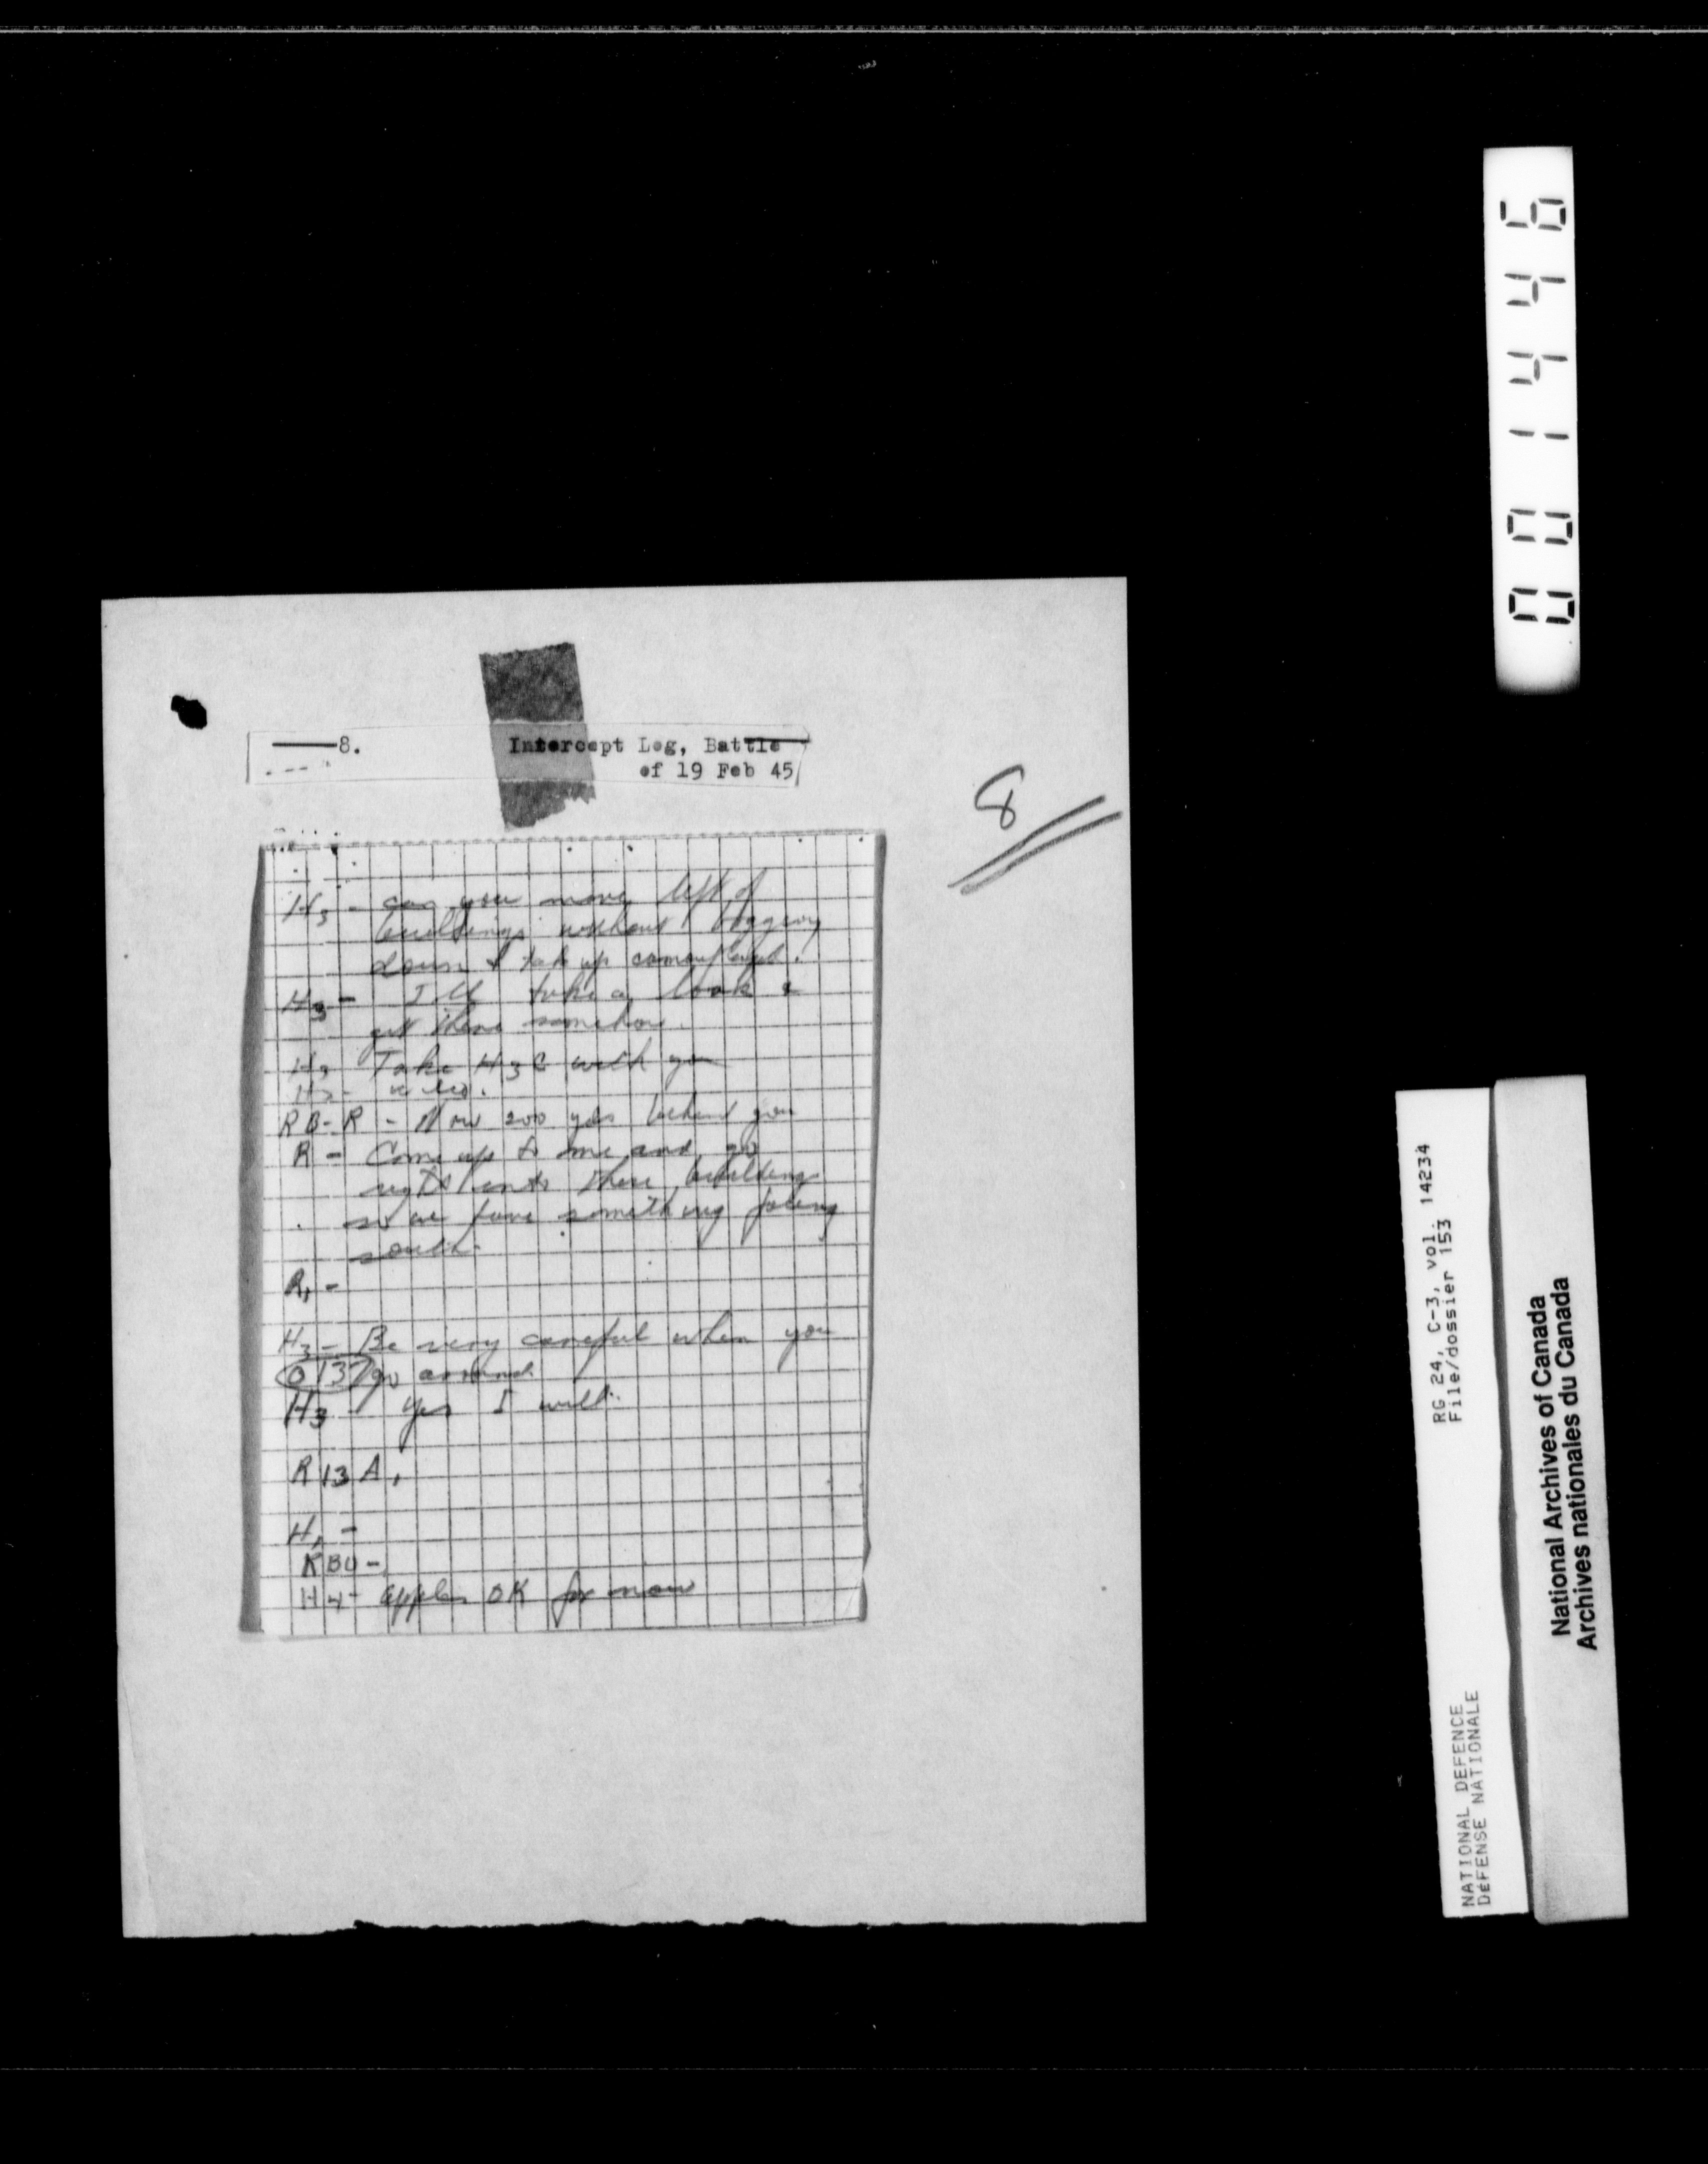 8.
Intercept Log, Battle
of 19 Feb 45
8
H3 - can you move left of
buildings without bogging
down & take up camouflaged.
H3 - I'll take a look &
get there somehow.
H3 Take H3C with you
H3 -
RB-R - Now 200 yds behind you
R - Come up to me and go
right into these buildings
so we have something facing
south.
R1 -
H3 - Be very careful when you
0137 go around.
H3 Yes I will.
R13A,
H1 -
RBU -
H4 - apples OK for now
001446
RG 24, C-3, vol. 14234
File/dossier 153
NATIONAL DEFENCE
DéFENSE NATIONALE
National Archives of Canada
Archives nationales du Canada